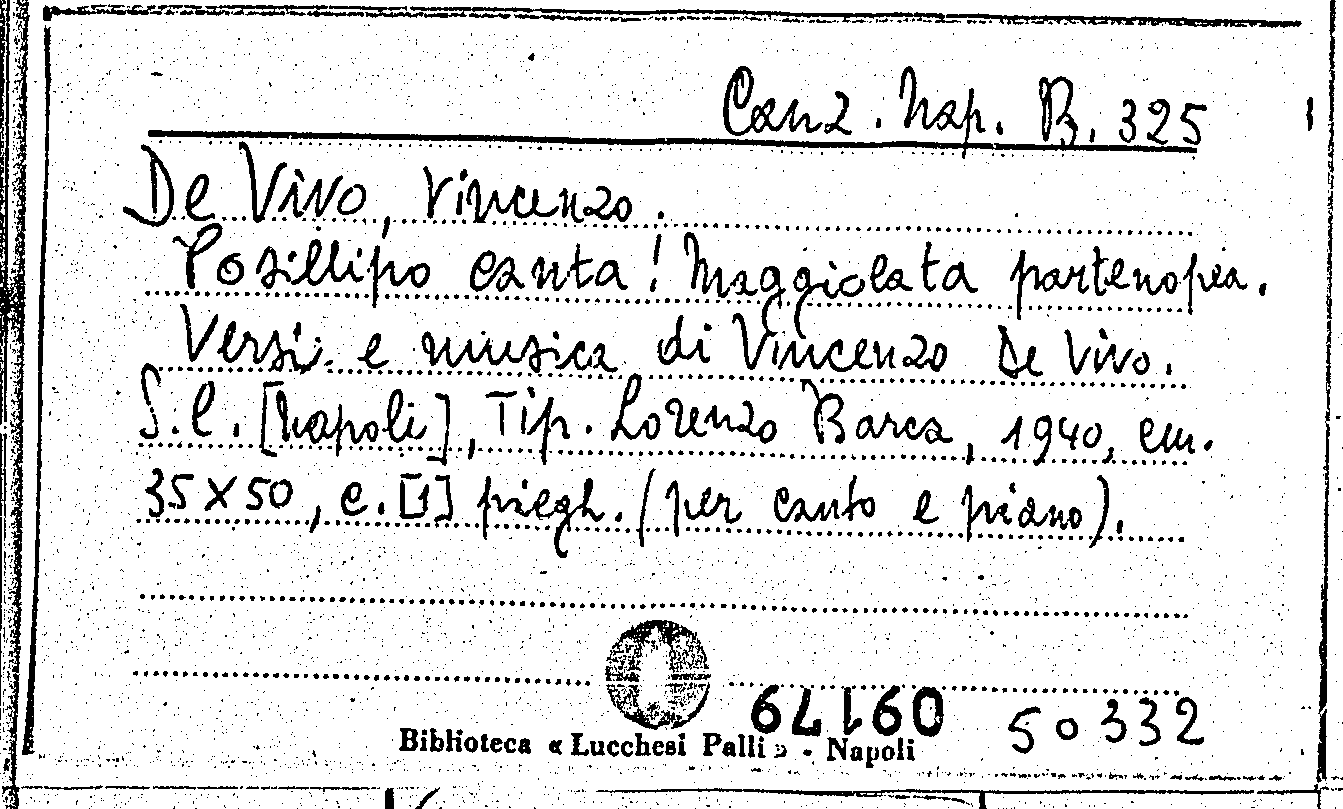 Canz. Nap. B. 325
De Vivo, Vincenzo.
Posillipo canta! Maggiolata partenopea.
Versi e musica di Vincenzo De Vivo.
S.l. [Napoli], Tip. Lorenzo Barca, 1940, cm.
35x50, c. [1] piegh. (per canto e piano).
09179 50332
Biblioteca « Lucchesi Palli » - Napoli